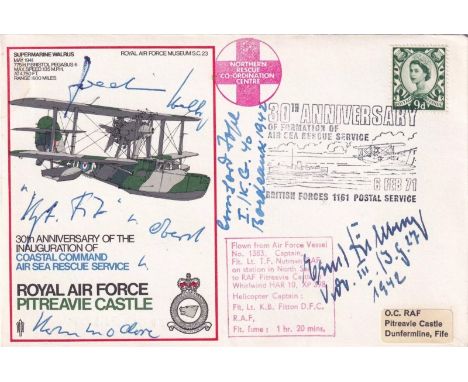 SUPERMARINE WALRUS
MAY 1941
775 H.P. BRISTOL PEGASUS 6
MAX. SPEED 135 M.P.H.
AT 4,750 FT.
RANGE 600 MILES
ROYAL AIR FORCE MUSEUM S.C. 23
30th ANNIVERSARY OF THE
INAUGURATION OF
COASTAL COMMAND
AIR SEA RESCUE SERVICE
ROYAL AIR FORCE
PITREAVIE CASTLE
NORTHERN
RESCUE
CO-ORDINATION
CENTRE
9d
30th ANNIVERSARY
OF FORMATION OF
AIR SEA RESCUE SERVICE
6 FEB 71
BRITISH FORCES 1161 POSTAL SERVICE
I./K.G. 40
Bordeaux 1942
1942
Flown from Air Force Vessel
No. 1383, Captain,
Flt. Lt. T.F. Nutman RAF
on station in North Sea
to RAF Pitreavie Castle
Whirlwind HAR 10, XP
Helicopter Captain:
Flt. Lt. K.B. Fitton D.F.C.
R.A.F.
Flt. Time: 1 hr. 20 mins.
O.C. RAF
Pitreavie Castle
Dunfermline, Fife